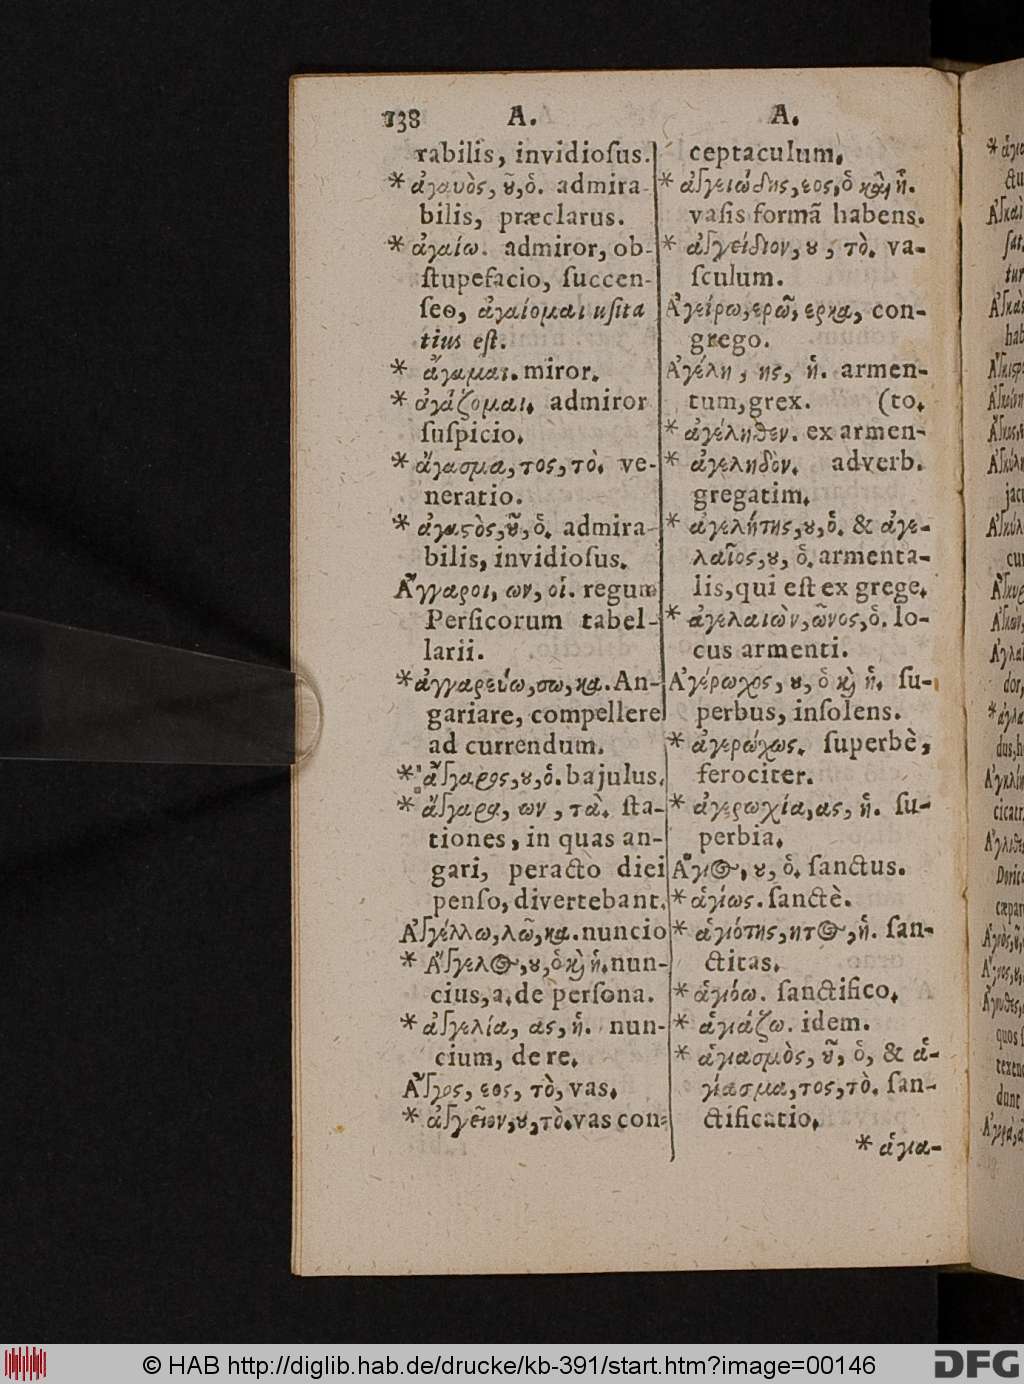 138 A. A.
rabilis, invidioſus.
* ἀγαυὸς, ȣ͂, ὁ. admira-
bilis, præclarus.
* ἀγαίω. admiror, ob-
ſtupefacio, ſuccen-
ſeo, ἀγαίομαι uſita
tius eſt.
* ἄγαμαι. miror.
* ἀγάζομαι. admiror
ſuſpicio.
* ἄγασμα, τος, τὸ. ve-
neratio.
* ἀγαςὸς, ȣ͂, ὁ. admira-
bilis, invidioſus.
Ἄγγαροι, ων, οἱ. regum
Perſicorum tabel-
larii.
* ἀγγαρεύω, σω, κα. An-
gariare, compellere
ad currendum.
* ἄγγαρος, ȣ, ὁ. bajulus.
* ἄγγαρα, ων, τὰ. ſta-
tiones, in quas an-
gari, peracto diei
penſo, divertebant.
Ἀγγέλλω, λῶ, κα. nuncio
* Ἄγγελος, ȣ, ὁ ϗ ἡ. nun-
cius, a, de perſona.
* ἀγγελία, ας, ἡ. nun-
cium, de re.
Ἄγγος, εος, τὸ, vas.
* ἀγγεῖον, ȣ, τὸ. vas con-
ceptaculum.
* ἀγγειώδης, εος, ὁ καὶ ἡ.
vaſis formã habens.
* ἀγγείδιον, ȣ, τὸ. va-
ſculum.
Ἀγείρω, ερῶ, ερκα, con-
grego.
Ἀγέλη, ης, ἡ. armen-
tum, grex. (to.
* ἀγέληθεν. ex armen-
* ἀγεληδὸν. adverb.
gregatim.
* ἀγελήτης, ȣ, ὁ. & ἀγε-
λαῖος, ȣ, ὁ. armenta-
lis, qui eſt ex grege.
* ἀγελαιὼν, ῶνος, ὁ. lo-
cus armenti.
Ἀγέρωχος, ȣ, ὁ ϗ ἡ. ſu-
perbus, inſolens.
* ἀγερώχως. ſuperbè,
ferociter.
* ἀγερωχία, ας, ἡ. ſu-
perbia.
Ἅγιος, ȣ, ὁ. ſanctus.
* ἁγίως. ſanctè.
* ἁγιότης, ητος, ἡ. ſan-
ctitas.
* ἁγιόω. ſanctifico.
* ἁγιάζω. idem.
* ἁγιασμὸς, ȣ͂, ὁ, & ἁ-
γίασμα, τος, τὸ. ſan-
ctificatio.
* ἁγια-
© HAB http://diglib.hab.de/drucke/kb-391/start.htm?image=00146
DFG